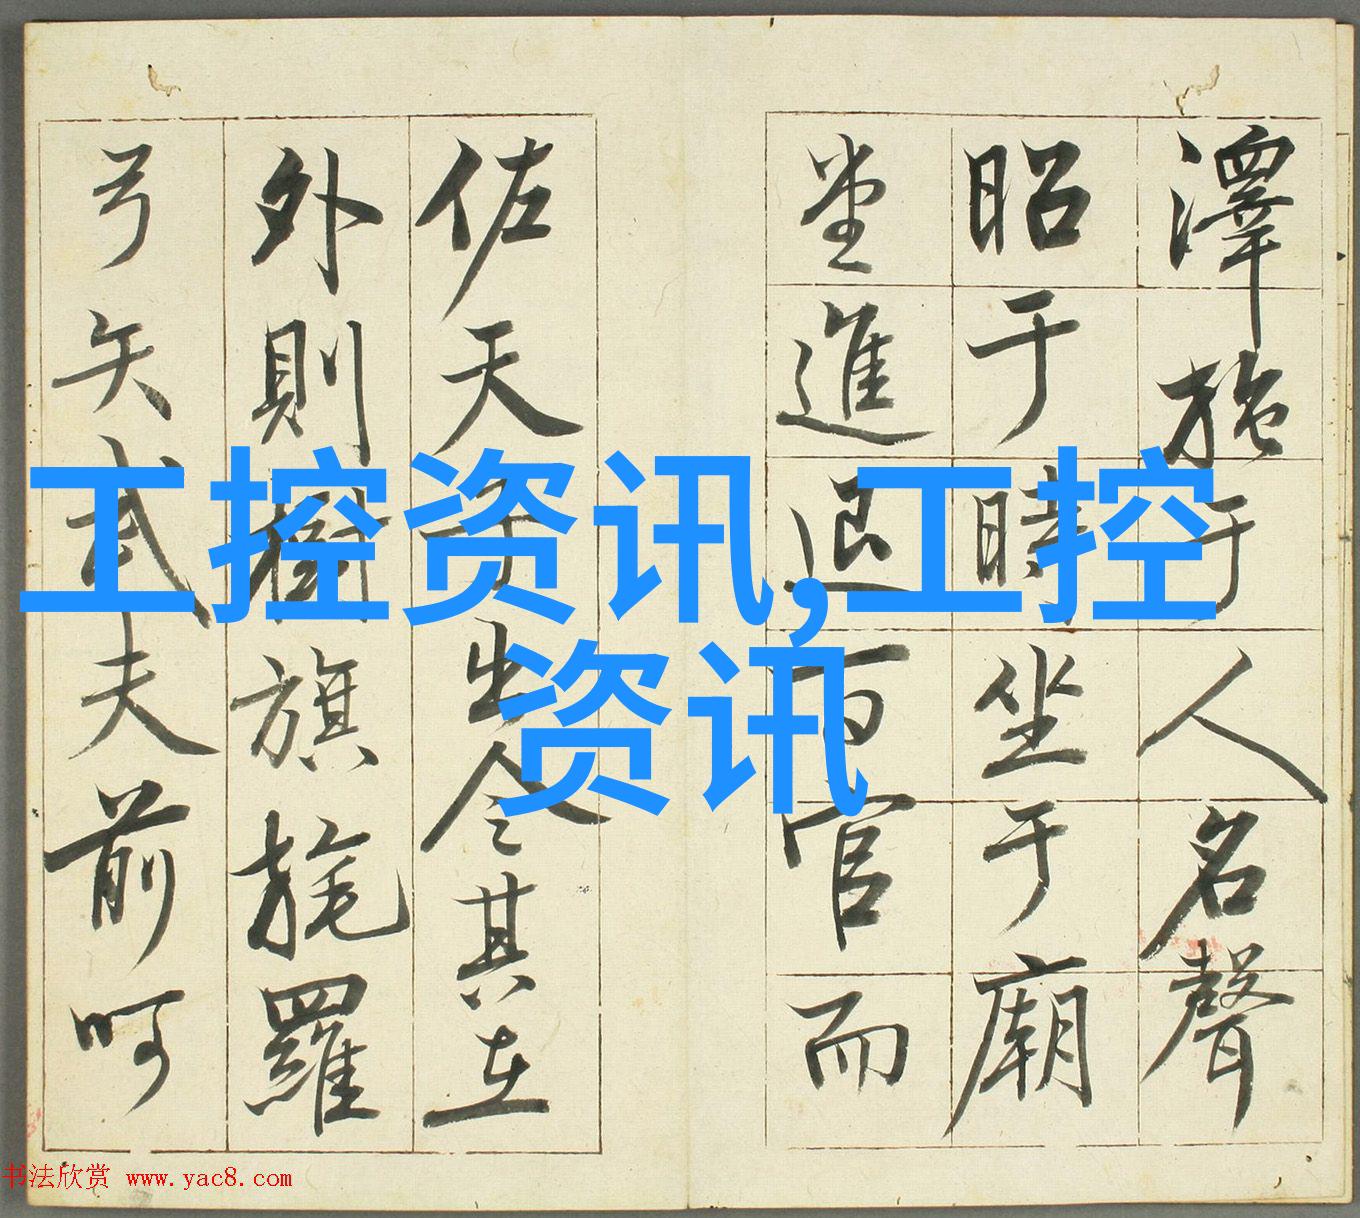 澤施于人名聲
昭于時坐于廟
堂進退百官而
佐天子出令其在
外則樹旗旄羅
弓矢武夫前呵
工控资讯,工控
资讯
书法欣赏 www.yac8.com